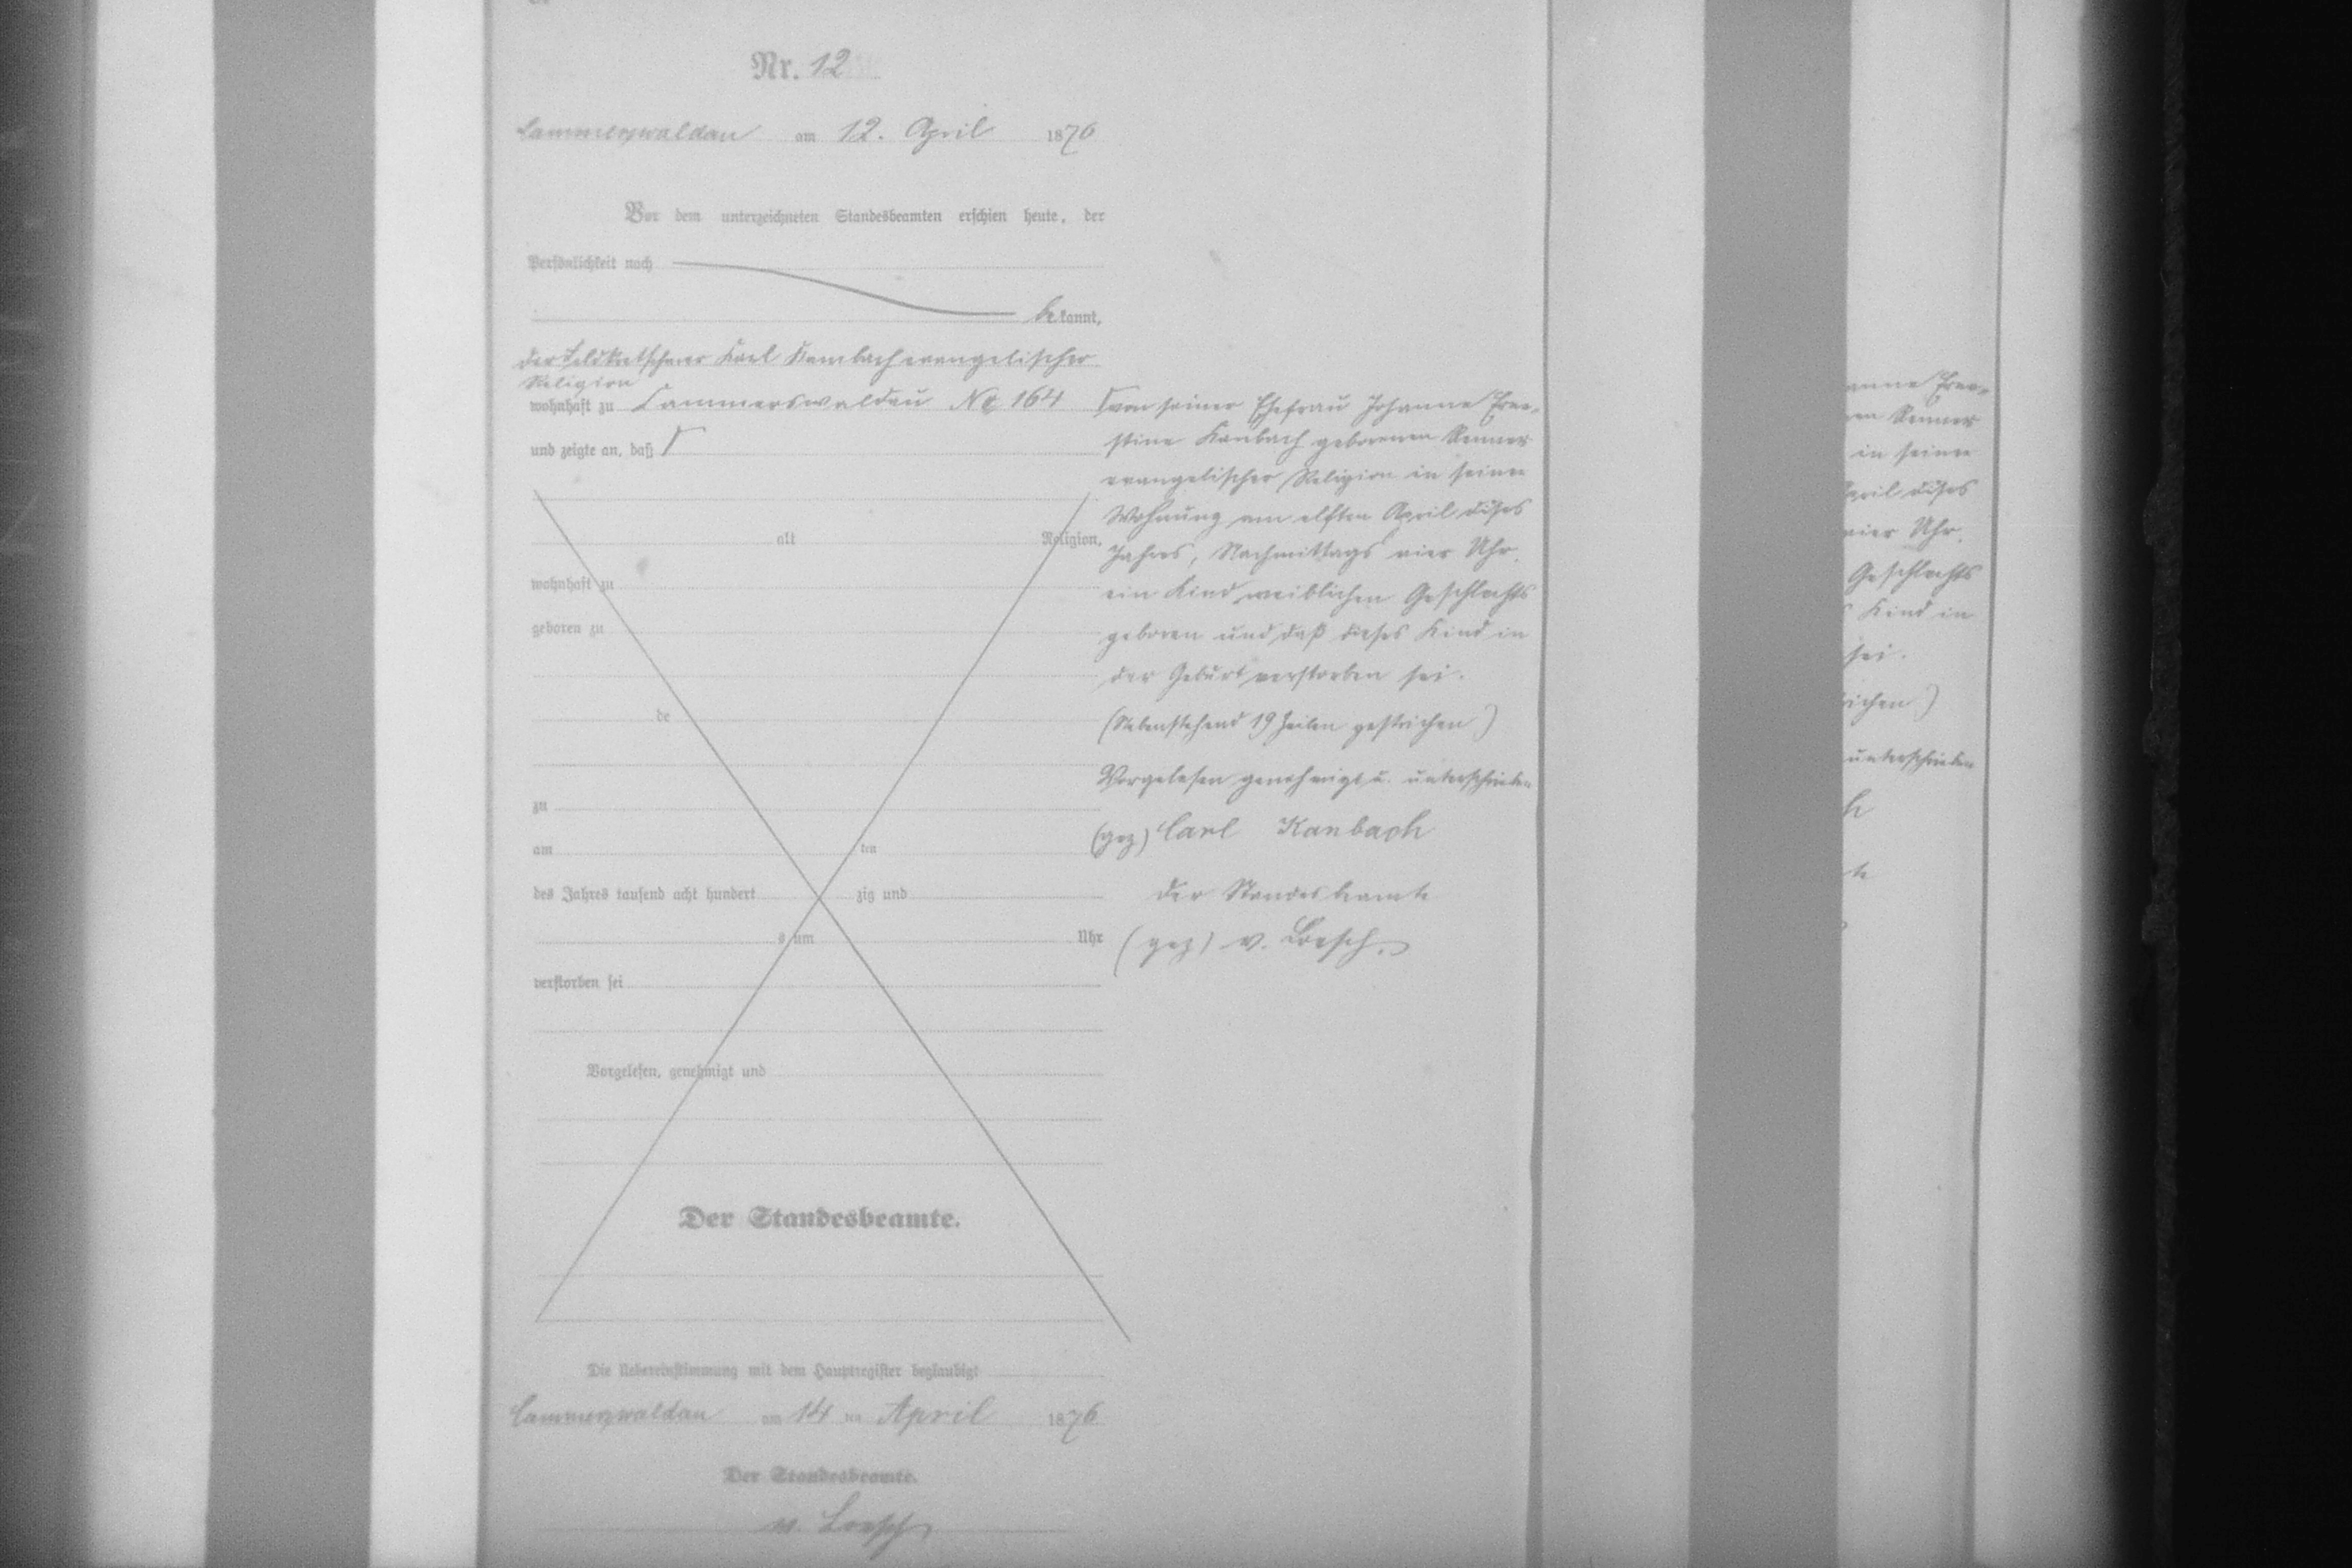 Nr. 12
Cammerswaldau am 12. April 1876
Vor dem unterzeichneten Standesbeamten erschien heute, der
Persönlichkeit nach
bekannt,
der Feldkretschmer Karl Kambach evangelischer
Religion
wohnhaft zu Cammerswaldau No 164
und zeigte an, daß Γ
alt Religion,
wohnhaft zu
geboren zu
de
zu
am ten
des Jahres tausend acht hundert zig und
s um Uhr
verstorben sei
Vorgelesen, genehmigt und
Der Standesbeamte.
Γ von seiner Ehefrau Johanne Erne-
stine Kanbach geborenen Renner
evangelischer Religion in seiner
Wohnung am elften April dises
Jahres, Nachmittags vier Uhr.
ein Kind weiblichen Geschlechts
geboren und daß dieses Kind in
der Geburt verstorben sei.
(Nebenstehend 19 Zeilen gestrichen)
Vorgelesen genehmigt u. unterschrieben
(gez) Carl Kanbach
Der Standesbeamte
(gez) v. Loesch.
Die Uebereinstimmung mit dem Hauptregister beglaubigt
Cammerswaldau am 14 ten April 1876
Der Standesbeamte.
v. Loesch
anne Erne-
nen Renner
in seiner
April dises
vier Uhr.
Geschlechts
s Kind in
sei.
richen)
unterschrieben
h
te